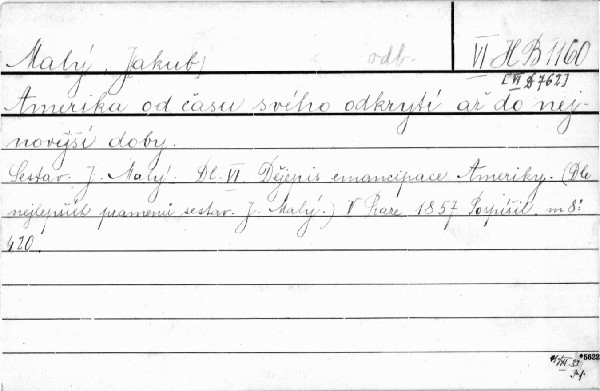 Malý, J[akub] odb. VI H B 1160
[VI D 762]
Amerika od času svého odkrytí až do nej-
novější doby.
Sestav. J. Malý. Dl. VI. Dějepis emancipace Ameriky. (Dle
nejlepších pramenů sestav. J. Malý.) V Praze, 1857 Pospíšil. m 8°.
420.
*5622